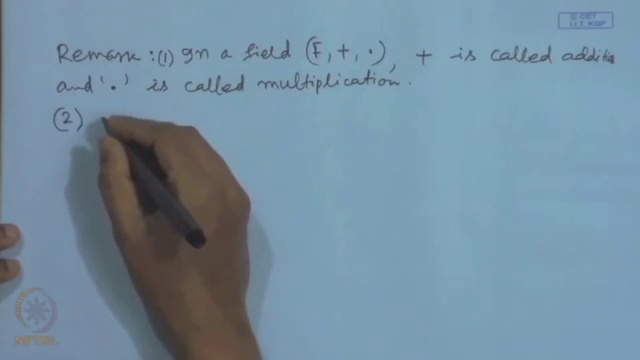 © CET
I.I.T. KGP
Remark : (1) In a field (F, +, ·), + is called addition
and '·' is called multiplication.
(2)
NPTEL